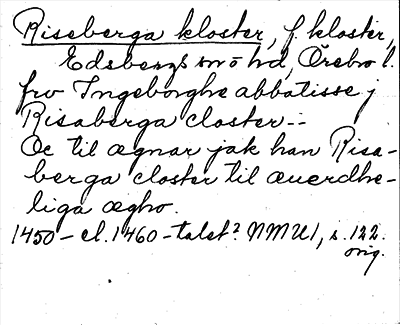 Riseberga kloster, f. kloster,
Edsbergs sn o hd, Örebro l.
frv Ingeborghe abbatisse j
Risaberga closter --
Oc til ægnar jak han Risa-
berga closter til æuerdhe-
liga ægho.
1450- el. 1460-talet? NMU1, s. 122.
orig.